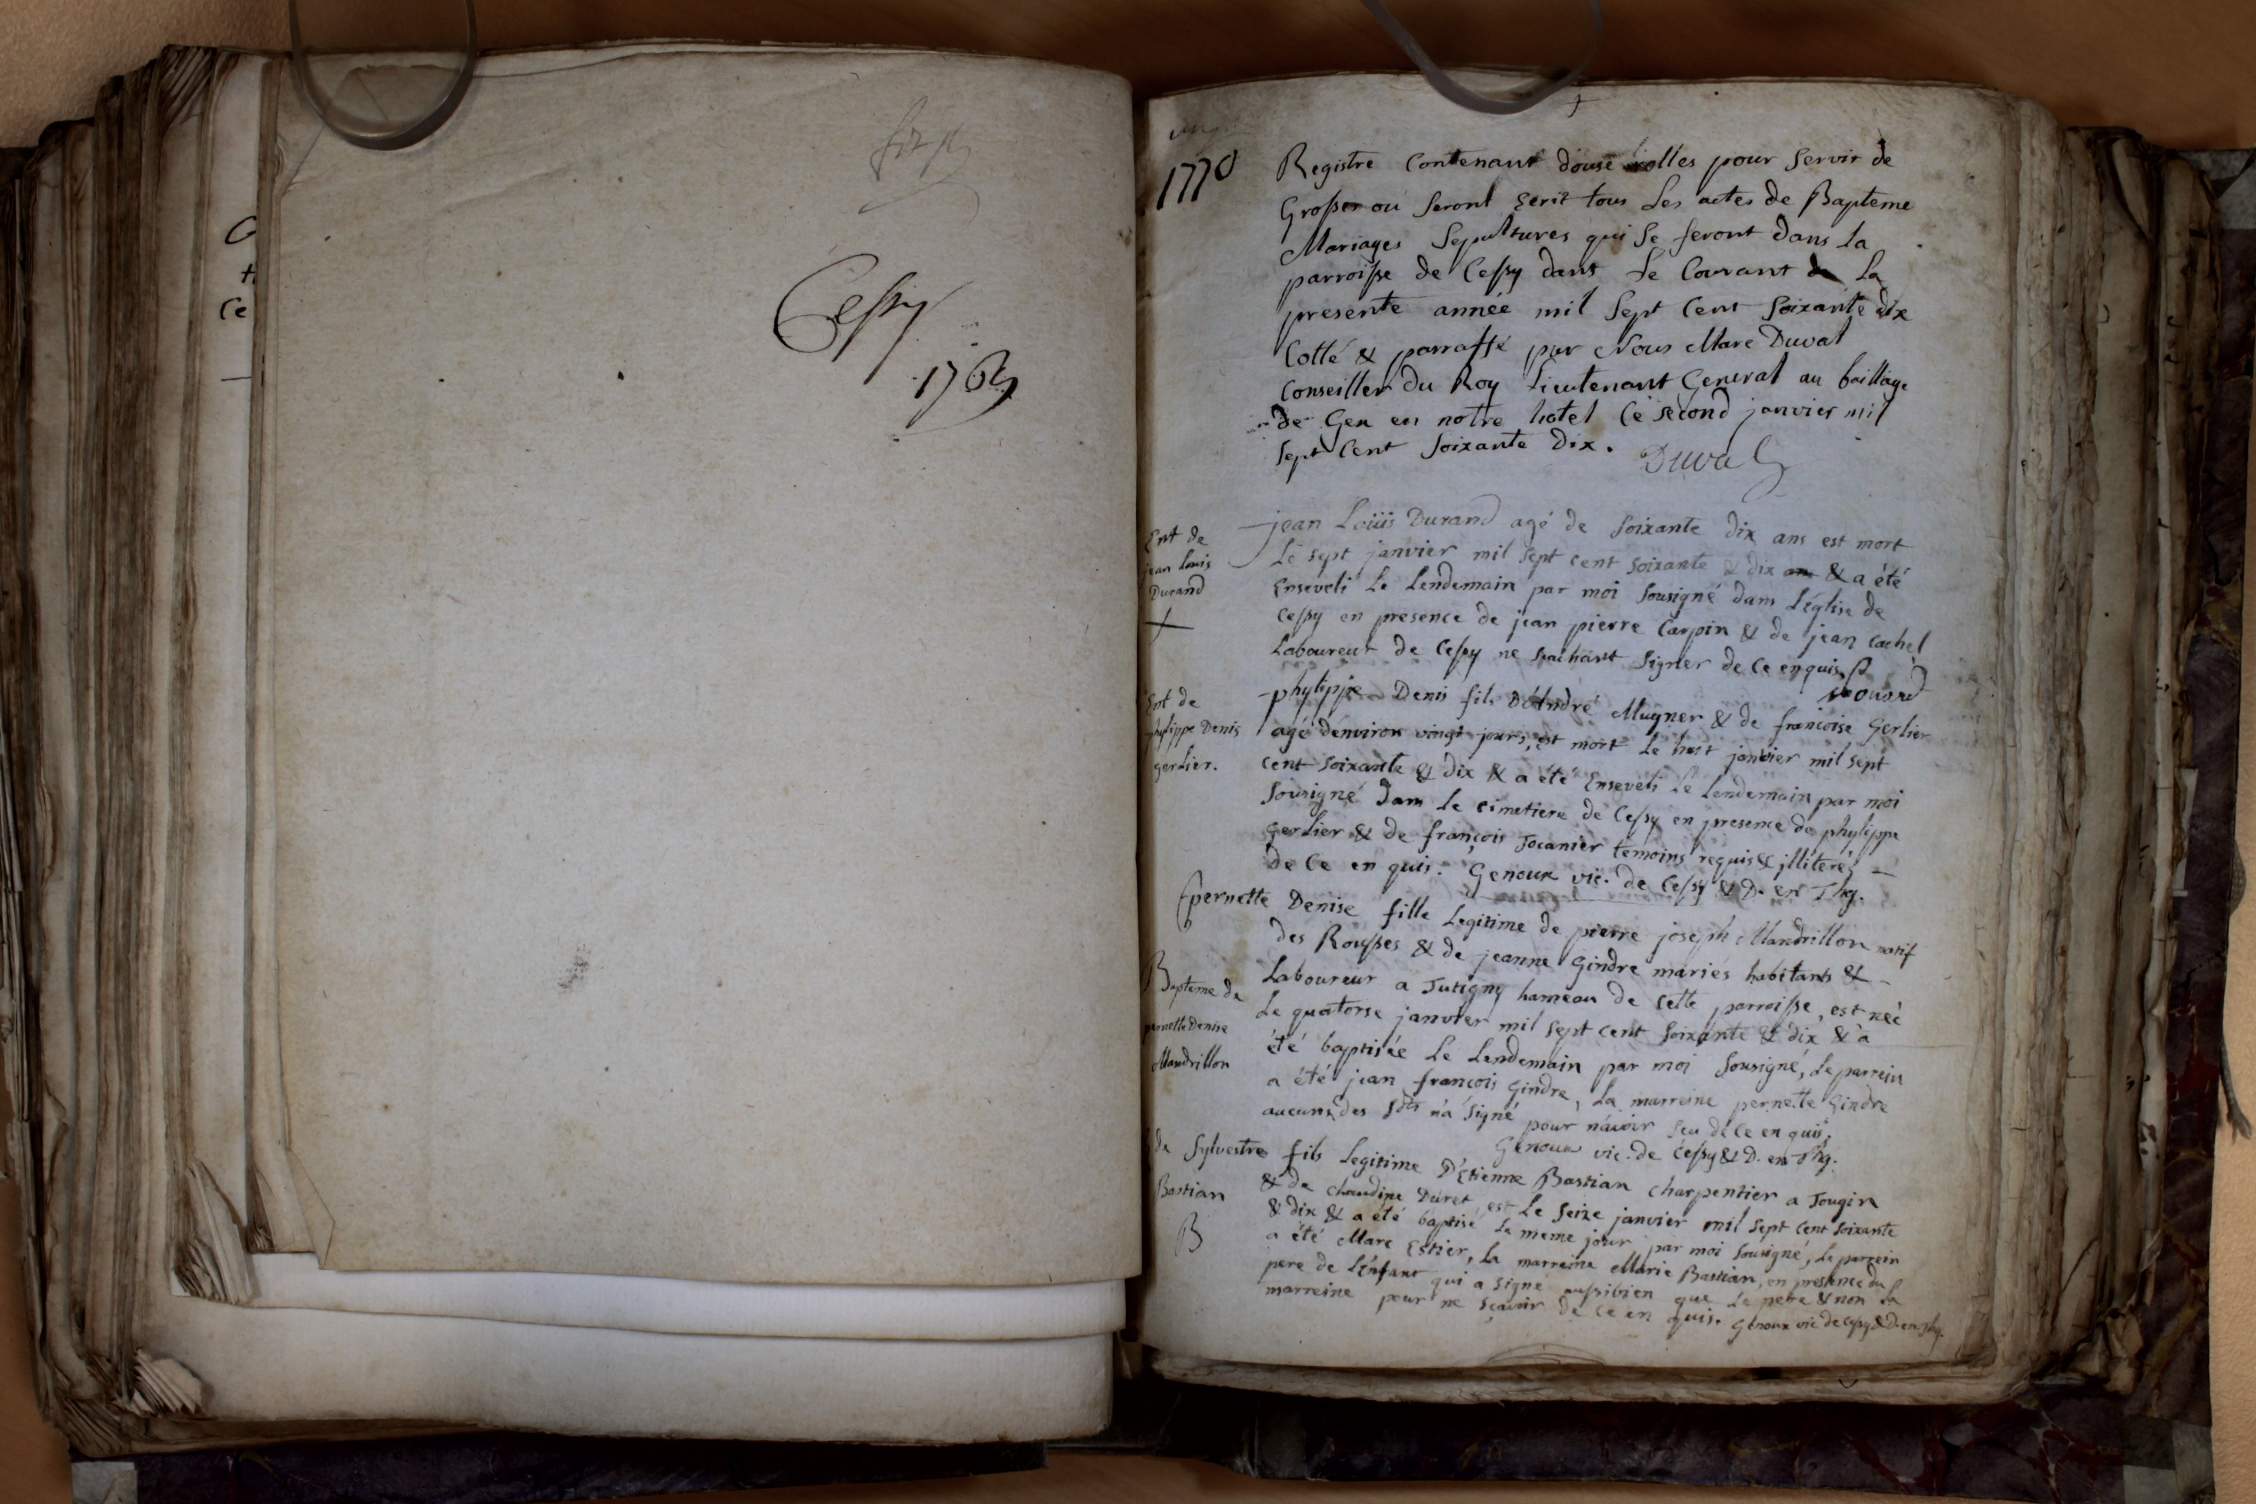 Cessy
1769
1770
Registre Contenant douse rolles pour Servir de
Grosser où Seront Ecrit tous Les actes de Bapteme
Mariages Sepultures qui Se feront dans La
parroisse de Cessy dans Le Courant de La
presente année mil Sept Cent Soixante dix
Cotté & parraffé par Nous Marc Duval
Conseiller du Roy Lieutenant General au baillage
de Gex en notre hotel Ce second janvier mil
Sept Cent Soixante Dix.
Duval
Ent de
jean Louis
Durand
jean Loüis Durand agé de Soixante dix ans est mort
Le sept janvier mil sept cent soixante & dix & a été
Enseveli Le Lendemain par moi Sousigné dans L'église de
Cessy en presence de jean pierre Carpin & de jean Cachel
Laboureur de Cessy ne sçachant Signer de Ce enquis
Ent de
phylippe Denis
gerlier.
phylippe Denis fils D'André Mugner & de françoise Gerlier
agé d'environ vingt jours, est mort Le huit janvier mil sept
cent soixante & dix & a été Enseveli Le Lendemain par moi
Sousigné dans Le cimetiere de Cessy en presence de phylippe
Gerlier & de françois Jocanier temoins requis & jlliterés
de Ce en quis. Genoux vic. de Cessy & D. en Thg.
Bapteme de
pernette Denise
Mandrillon
pernette Denise fille Legitime de pierre joseph Mandrillon natif
des Rousses & de jeanne Gindre mariés habitants &
Laboureur a Tutigny hameau de Cette parroisse, est née
Le quatorse janvier mil sept cent Soixante & dix & a
été baptisée Le Lendemain par moi Sousigné, Le parrein
a été jean françois Gindre, La marreine pernette Gindre
aucuns des Sdts n'a Signé pour n'avoir Seu de Ce en quis.
Genoux vic. de Cessy & D. en Thg.
de Sylvestre
Bastian
B
fils Legitime D'Etienne Bastian charpentier a Tougin
& de Claudine Duret est Le Seize janvier mil sept Cent Soixante
& dix & a été baptisé Le meme jour par moi Sousigné, Le parrein
a été Marc Estier, La marreine Marie Bastian, en presence du
pere de L'enfant qui a Signé aussibien que Le pere & non La
marreine pour ne sçavoir de Ce en quis. Genoux vic de Cessy & D. en Thg.